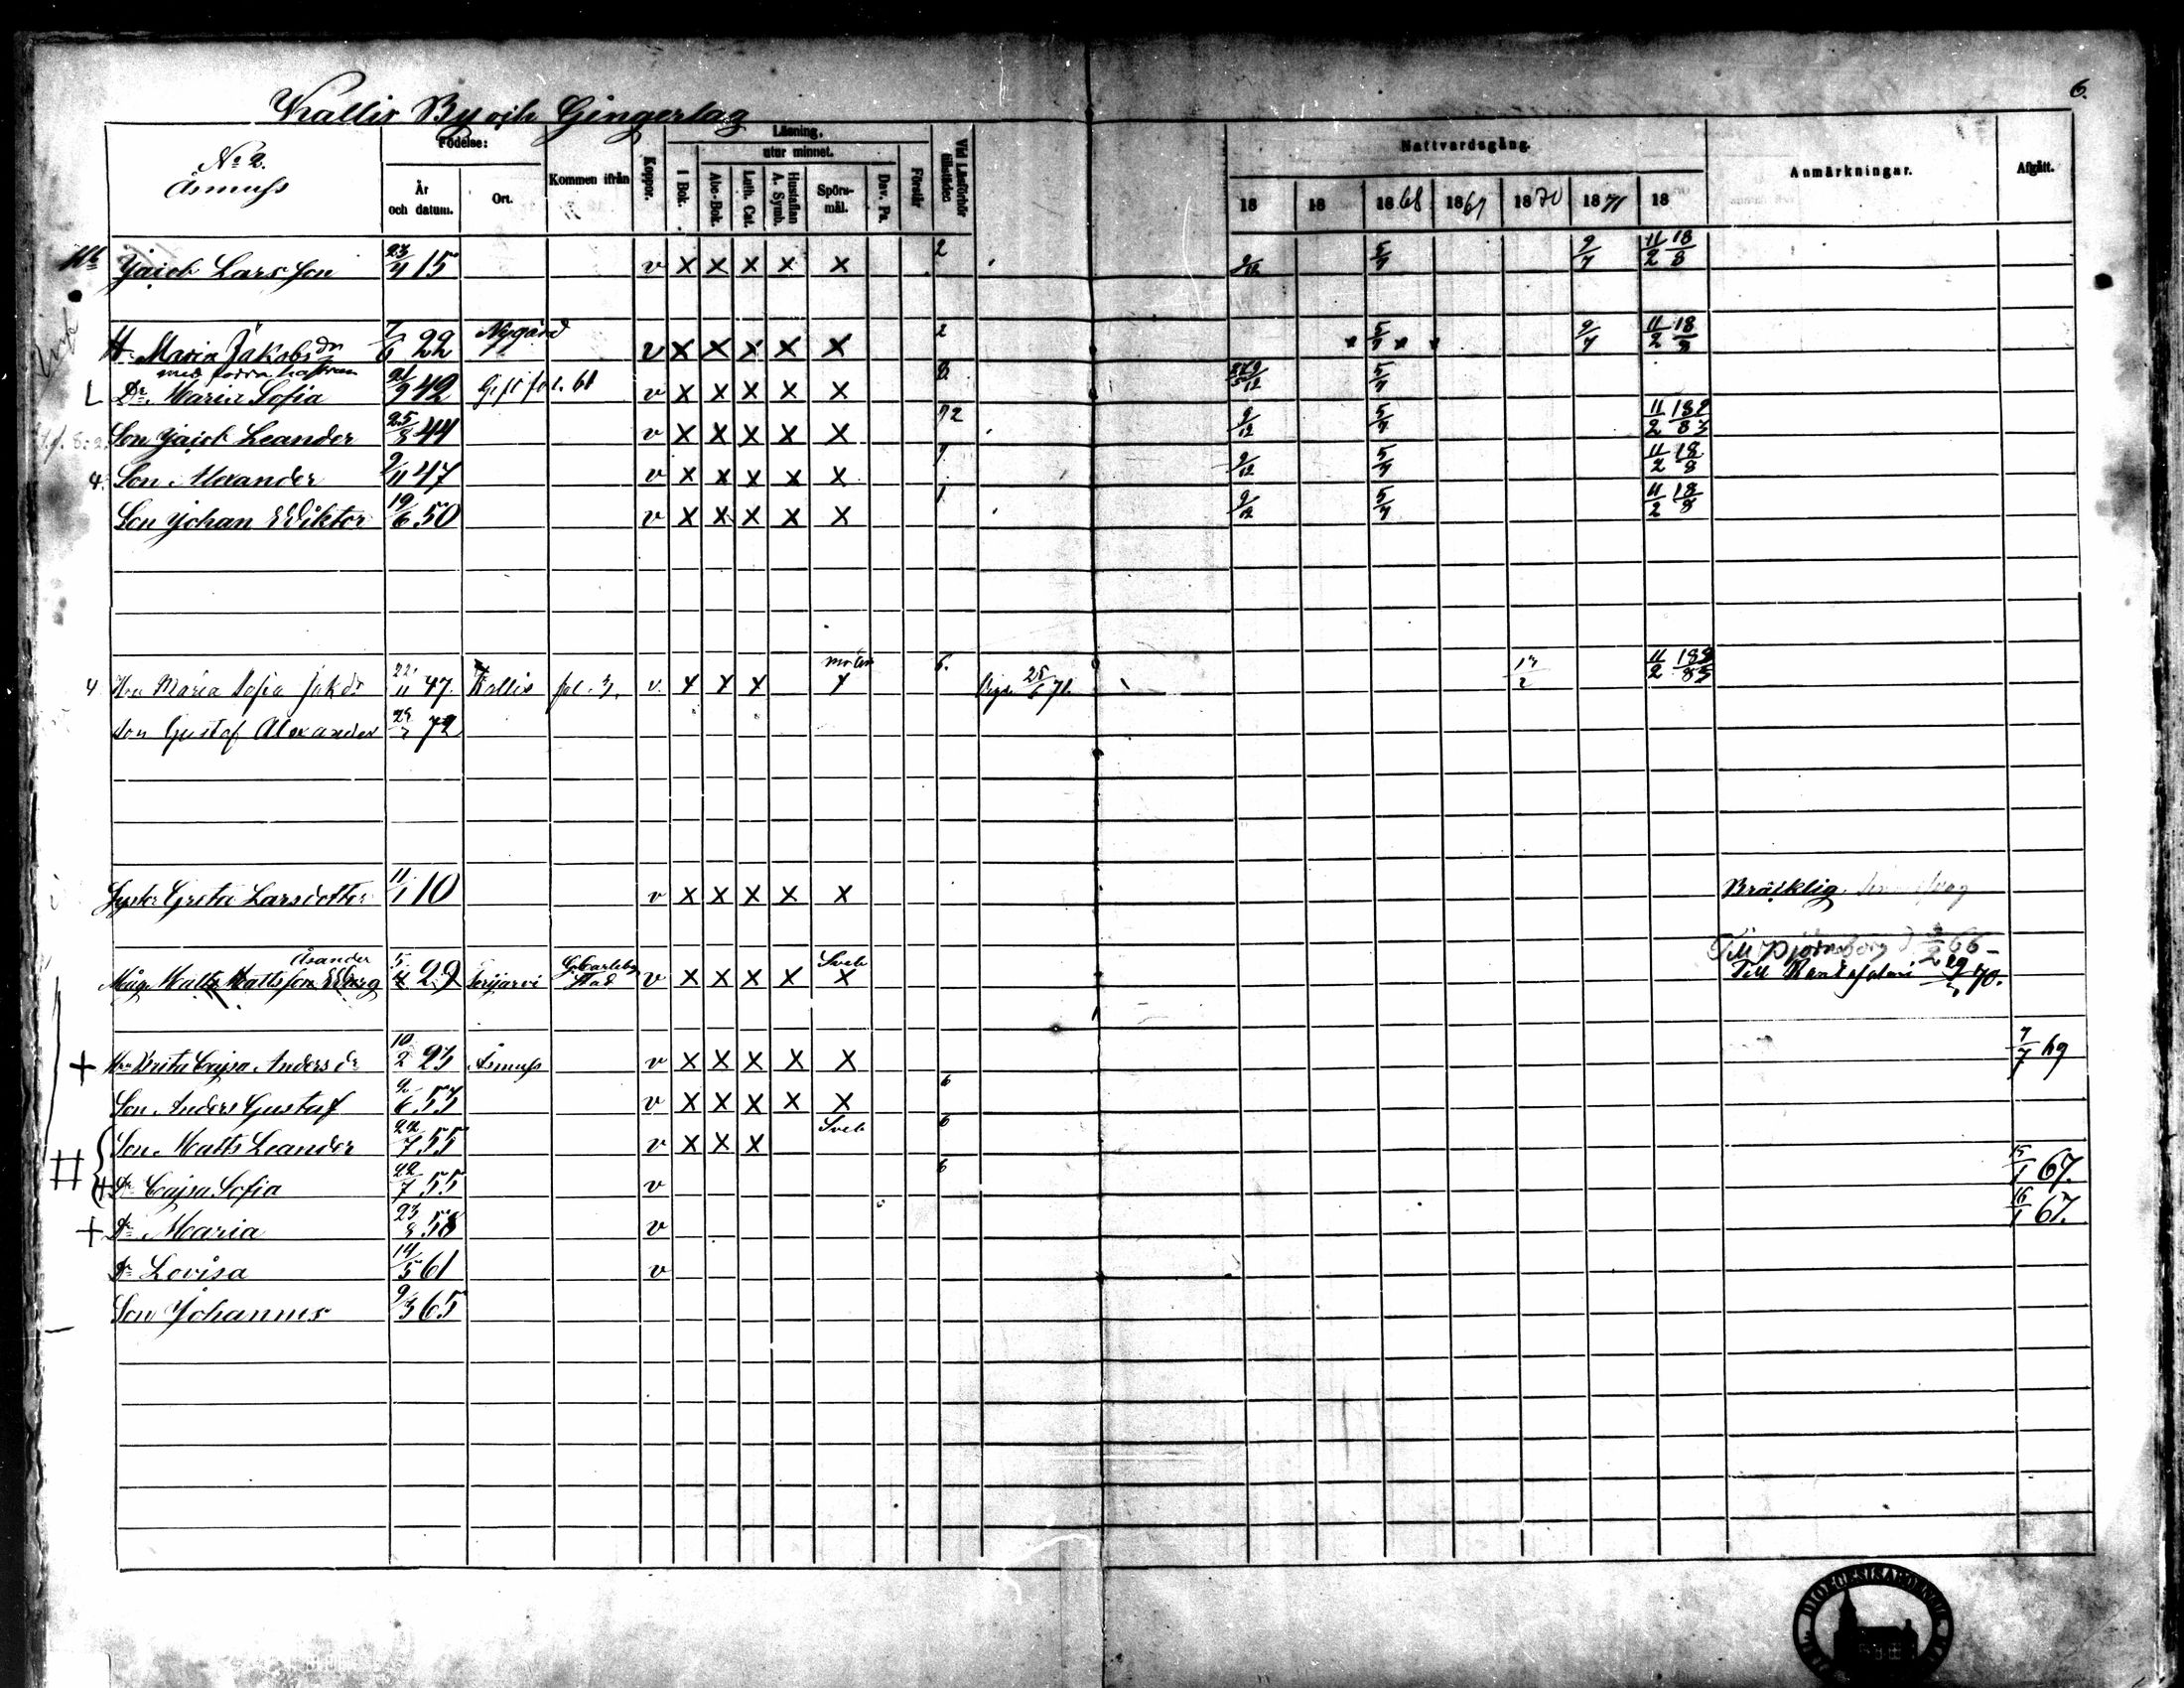 6.
Kallis By och Gingerlag
No 2.
Åsmuss
Födelse:
År och datum.
Ort.
Kommen ifrån
Koppor.
Läsning,
utur minnet.
I Bok.
Abc-Bok.
Luth. Cat.
Hustaflan A. Symb.
Spörs-mål.
Dav. Ps.
Förstår
Vid Läsförhör tillstädes
Nattvardsgång.
18 18 1868 1869 1870 1871 18
Anmärkningar.
Afgått.
Jacob Larsson 23/4 15 v x x x x x 2 9/12 5/7 9/7 11/2 18/8
H. Maria Jakobsdr 7/6 22 Nygård v x x x x x 2 5/7 9/7 11/2 18/8
med förra
L Dr. Maria Sofia 21/9 42 Gift fol. 61 v x x x x x 8. 5/7
Son Jacob Leander 25/8 44 v x x x x x 72 9/12 5/7 11/2 18/8
4. Son Alexander 2/11 47 v x x x x x 7 9/12 5/7 11/2 18/8
Son Johan Wiktor 19/6 50 v x x x x x 1 9/12 5/7 11/2 18/8
4 Hu Maria Sofia Jakdr 22/11 47. Kallis fol. 3. v. x x x x 6. Vigd 25/6 71. 11/2
son Gustaf Alexander 72
Syster Greta Larsdotter 11/1 10 v x x x x x Bräcklig
Åsander
Måg Matts Mattsson 29 Terijärvi G. Carleby Stad v x x x x Sveb x Till Björneborg 66
Till 70.
+ Hu Greta Cajsa Andersdr 10/2 23 Åsmuss v x x x x x 7/7 69
Son Anders Gustaf 9/6 53 v x x x x x 6
Son Matts Leander 22/7 55 v x x x Sveb 6
+ Dr Cajsa Sofia 22/7 55 v 6 15/1 67.
+ Dr Maria 23/8 58 v 16/1 67.
Dr Lovisa 14/5 61 v
Son Johannes 9/3 65